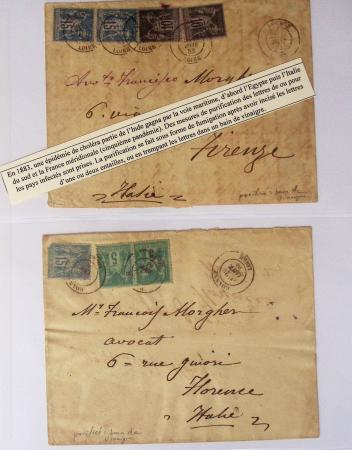 Avto Francisco Morgher
6. via
En 1883, une épidémie de choléra partie de l'Inde gagna par la voie maritime, d'abord l'Egypte puis l'Italie
du sud et la France méridionale (cinquième pandémie). Des mesures de purification des lettres de ou pour
les pays infectés sont prises. La purification se fait sous forme de fumigation après avoir incisé les lettres
d'une ou deux entailles, ou en trempant les lettres dans un bain de vinaigre.
Firenze
Italie
purifiée : bain de
vinaigre
Mr Francois Morgher
avocat
6 - rue
Florence
Italie
purifiée : bain de
vinaigre